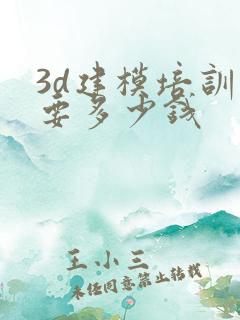 3d建模培訓
要多少钱
王小三
未经同意禁止转载